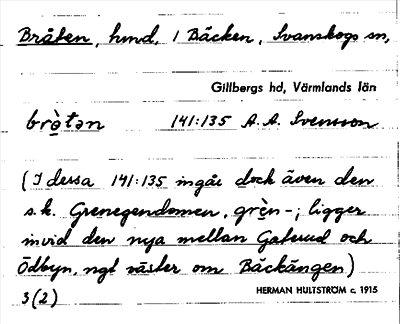 Bråten, hmd, 1 Bäcken, Svanskogs sn,
Gillbergs hd, Värmlands län
brò̤tən 141:135 A. A. Svensson
(I dessa 141:135 ingår dock även den
s.k. Grenegendomen, grè̤n-; ligger
invid den nya mellan Gaterud och
Ödbyn, ngt väster om Bäckängen)
3(2) HERMAN HULTSTRÖM c. 1915